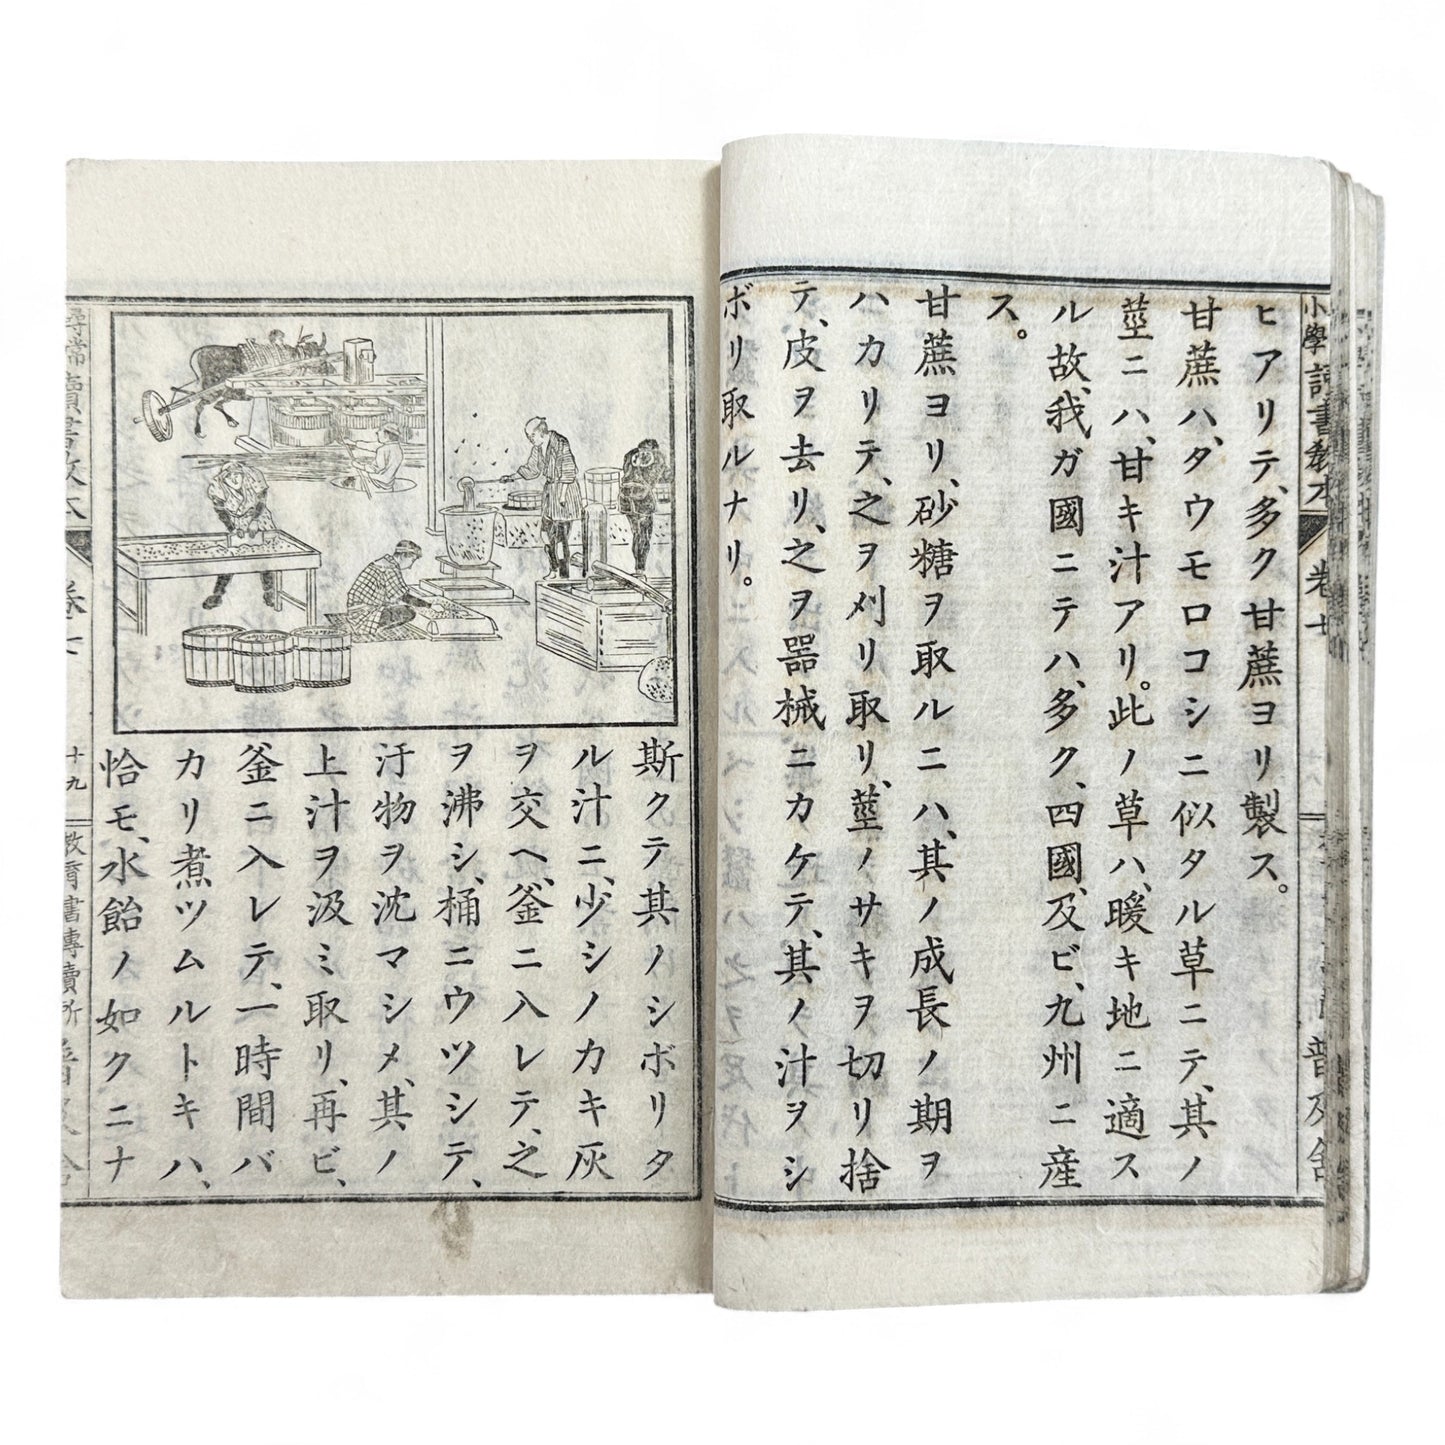 ヒアリテ、多ク甘蔗ヨリ製ス。
甘蔗ハ、タウモロコシニ似タル草ニテ、其ノ
莖ニハ、甘キ汁アリ。此ノ草ハ、暖キ地ニ適ス
ル故、我ガ國ニテハ、多ク、四國、及ビ、九州ニ産
ス。
甘蔗ヨリ、砂糖ヲ取ルニハ、其ノ成長ノ期ヲ
ハカリテ、之ヲ刈リ取リ、莖ノサキヲ切リ捨
テ、皮ヲ去リ、之ヲ器械ニカケテ、其ノ汁ヲシ
ボリ取ルナリ。
斯クテ其ノシボリタ
ル汁ニ、少シノカキ灰
ヲ交ヘ、釜ニ入レテ、之
ヲ沸シ、桶ニウツシテ、
汙物ヲ沈マシメ、其ノ
上汁ヲ汲ミ取リ、再ビ、
釜ニ入レテ、一時間バ
カリ煮ツムルトキハ、
恰モ、水飴ノ如クニナ
尋常讀書教本
卷七
十九
教育書專賣所